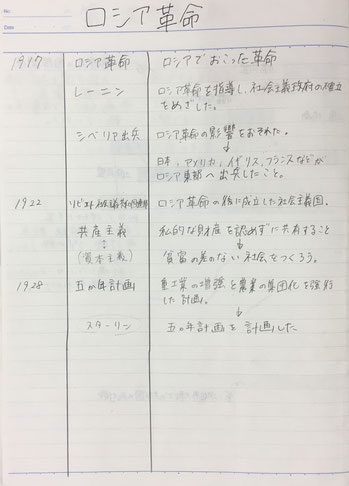 No.
Date
ロシア革命
1917 ロシア革命 ロシアでおこった革命
レーニン ロシア革命を指導し、社会主義政府の確立
をめざした。
シベリア出兵 ロシア革命の影響をおそれた。
↓
日本、アメリカ、イギリス、フランスなどが
ロシア東部へ出兵したこと。
1922 ロシア革命の後に成立した社会主義国。
共産主義 私的な財産を認めずに共有すること
↕ ↓
(資本主義) 貧富の差のない社会をつくろう。
1928 五か年計画 重工業の増強と農業の集団化を強行
した計画。
↓
スターリン 五か年計画を計画した